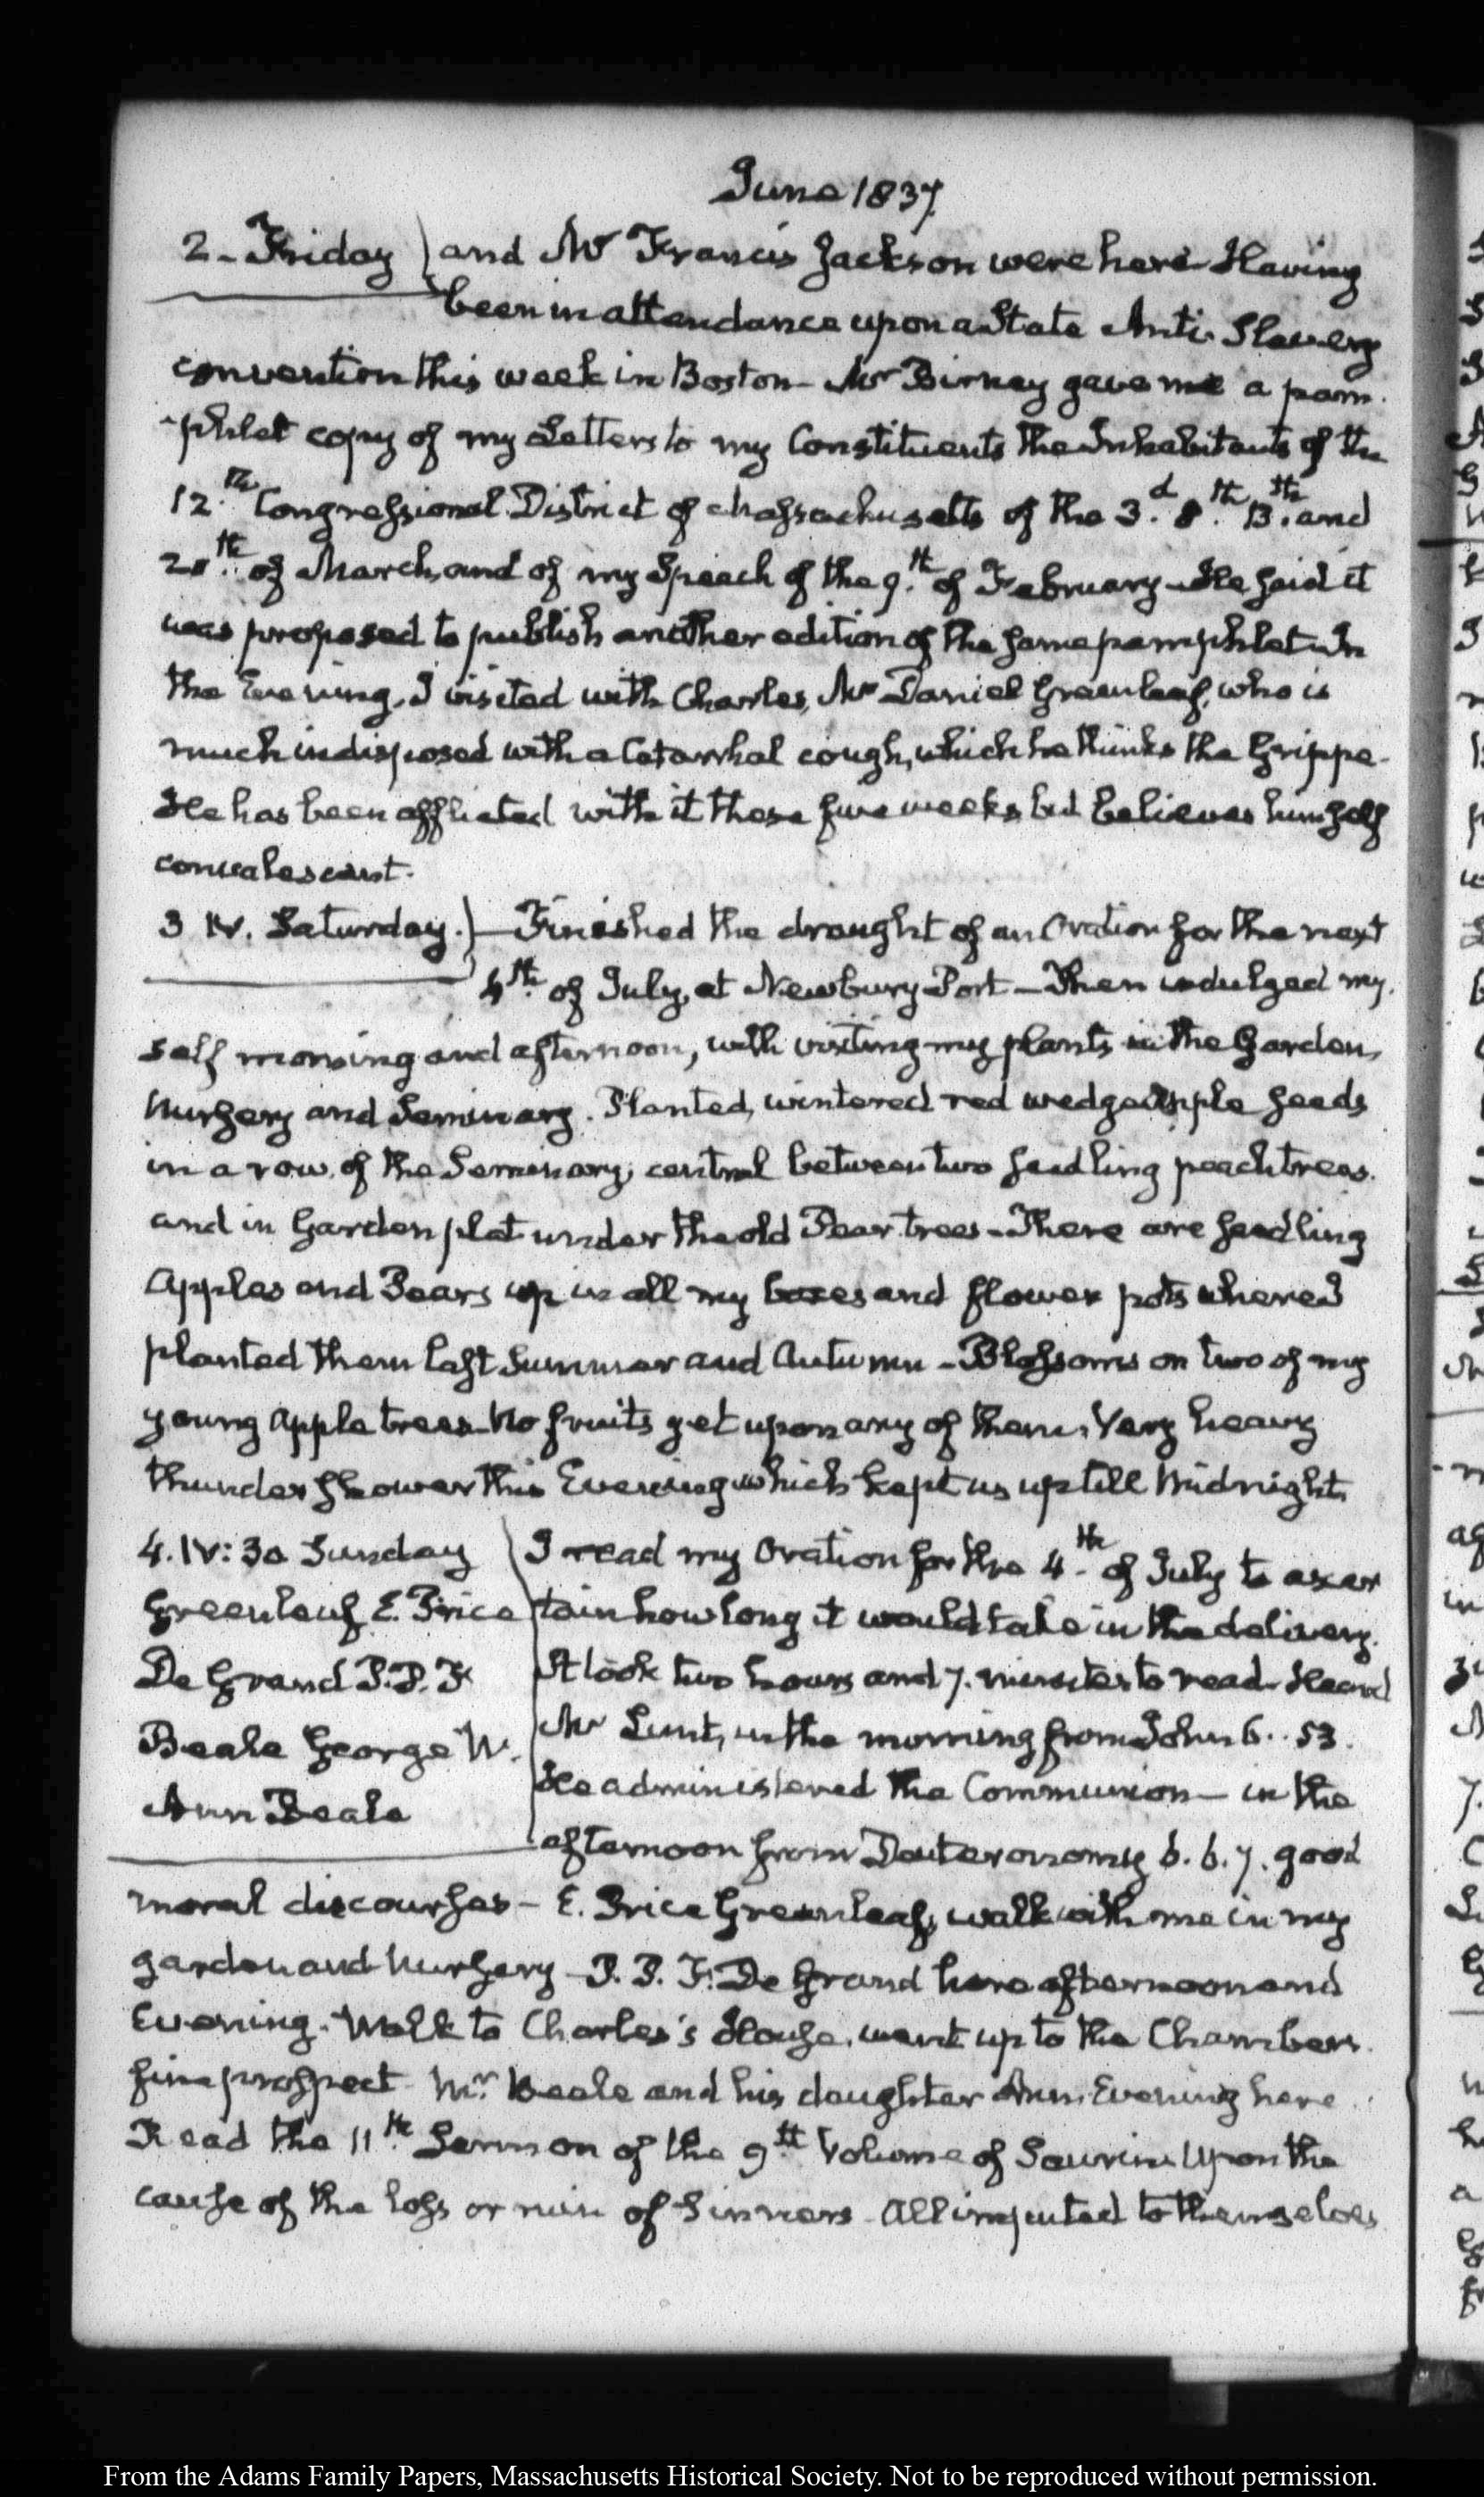 June 1837
2 - Friday } and Mr Francis Jackson were here - Having
been in attendance upon a State Anti-Slavery
convention this week in Boston - Mr Birney gave me a pam-
-phlet copy of my Letters to my Constituents the Inhabitants of the
12th Congressional District of Massachusetts of the 3d 8th 13th and
20th of March, and of my Speech of the 9th of February - He said it
was proposed to publish another edition of the same pamphlet - In
the Evening, I visited with Charles, Mr Daniel Greenleaf, who is
much indisposed with a Catarrhal cough, which he thinks the Grippe -
He has been afflicted with it these five weeks but believes himself
convalescent.
3 IV. Saturday. } - Finished the draught of an Oration for the next
4th of July, at Newbury-Port - Then indulged my-
self morning and afternoon, with visiting my plants in the Garden,
Nursery and Seminary. Planted, wintered red wedge apple seeds
in a row of the Seminary, central between two seedling peach trees.
and in Garden plat under the old Pear trees - There are seedling
Apples and Pears up in all my boxes and flower pots where I
planted them last Summer and Autumn - Blossoms on two of my
young apple trees - No fruits yet upon any of them. Very heavy
thunder shower this Evening which kept us up till Midnight.
4. IV:30 Sunday
Greenleaf E. Price
De Grand P.P.F.
Beale George W.
Ann Beale
I read my Oration for the 4th of July to ascer
tain how long it would take in the delivery.
It took two hours and 7. minutes to read - Heard
Mr Lunt, in the morning from John 6..53.
He administered the Communion - in the
afternoon from Deuteronomy 6.6.7. good
moral discourses - E. Price Greenleaf, walk with me in my
garden and Nursery - P. P. F. De Grand here afternoon and
Evening. Walk to Charles's House. went up to the Chambers.
fine prospect - Mr. Beale and his daughter Ann Evening here.
Read the 11th Sermon of the 9th Volume of Saurin upon the
cause of the loss or ruin of Sinners - All imputed to themselves
From the Adams Family Papers, Massachusetts Historical Society. Not to be reproduced without permission.